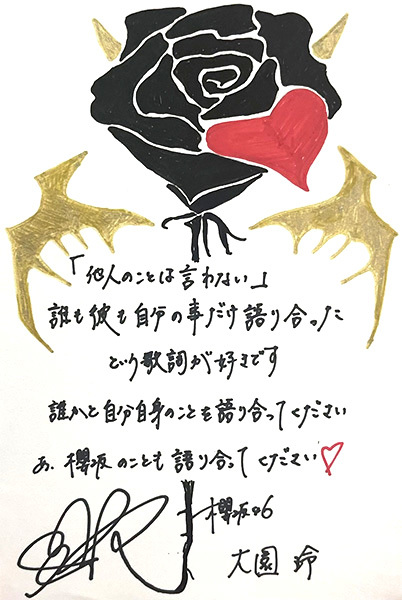 「他人のことは言わない」
誰も彼も自分の事だけ語り合った
という歌詞が好きです
誰かと自分自身のことを語り合ってください
あ、櫻坂のことも語り合ってください♡
櫻坂46
大園 玲